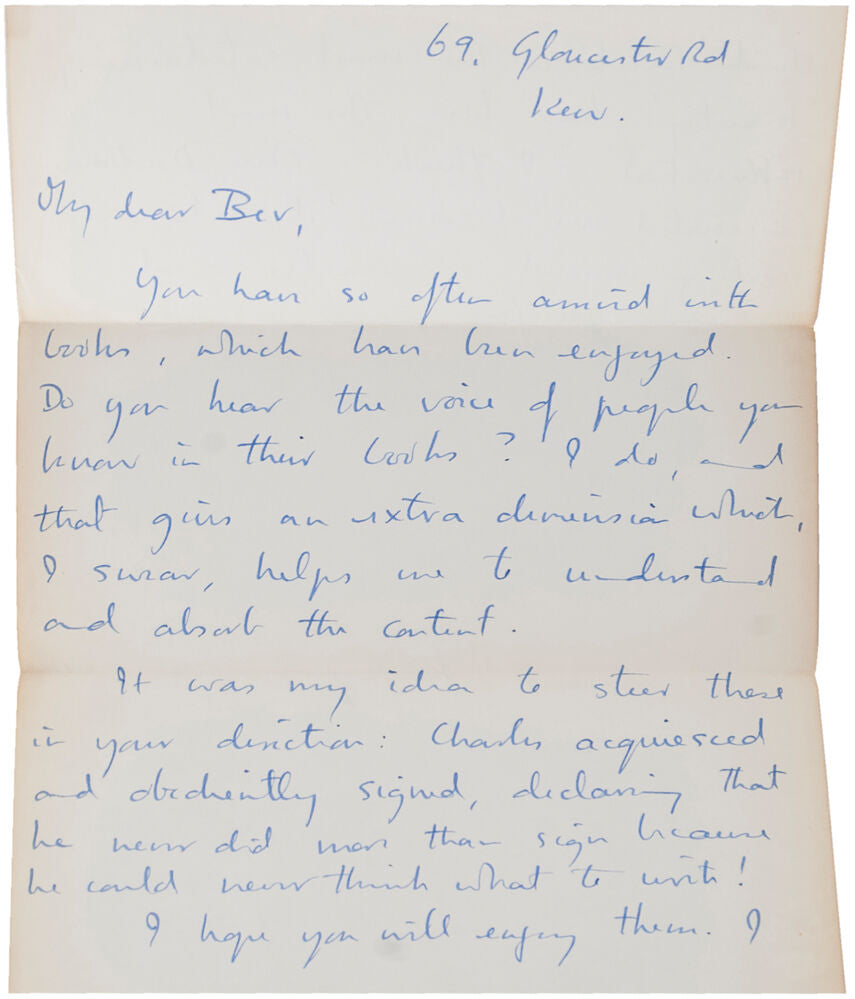 69, Gloucester Rd
Kew.
My dear Bev,
You have so often arrived with
books, which have been enjoyed.
Do you hear the voice of people you
know in their books? I do, and
that gives an extra dimension which,
I swear, helps me to understand
and absorb the content.
It was my idea to steer these
in your direction: Charles acquiesced
and obediently signed, declaring that
he never did more than sign because
he could never think what to write!
I hope you will enjoy them. I